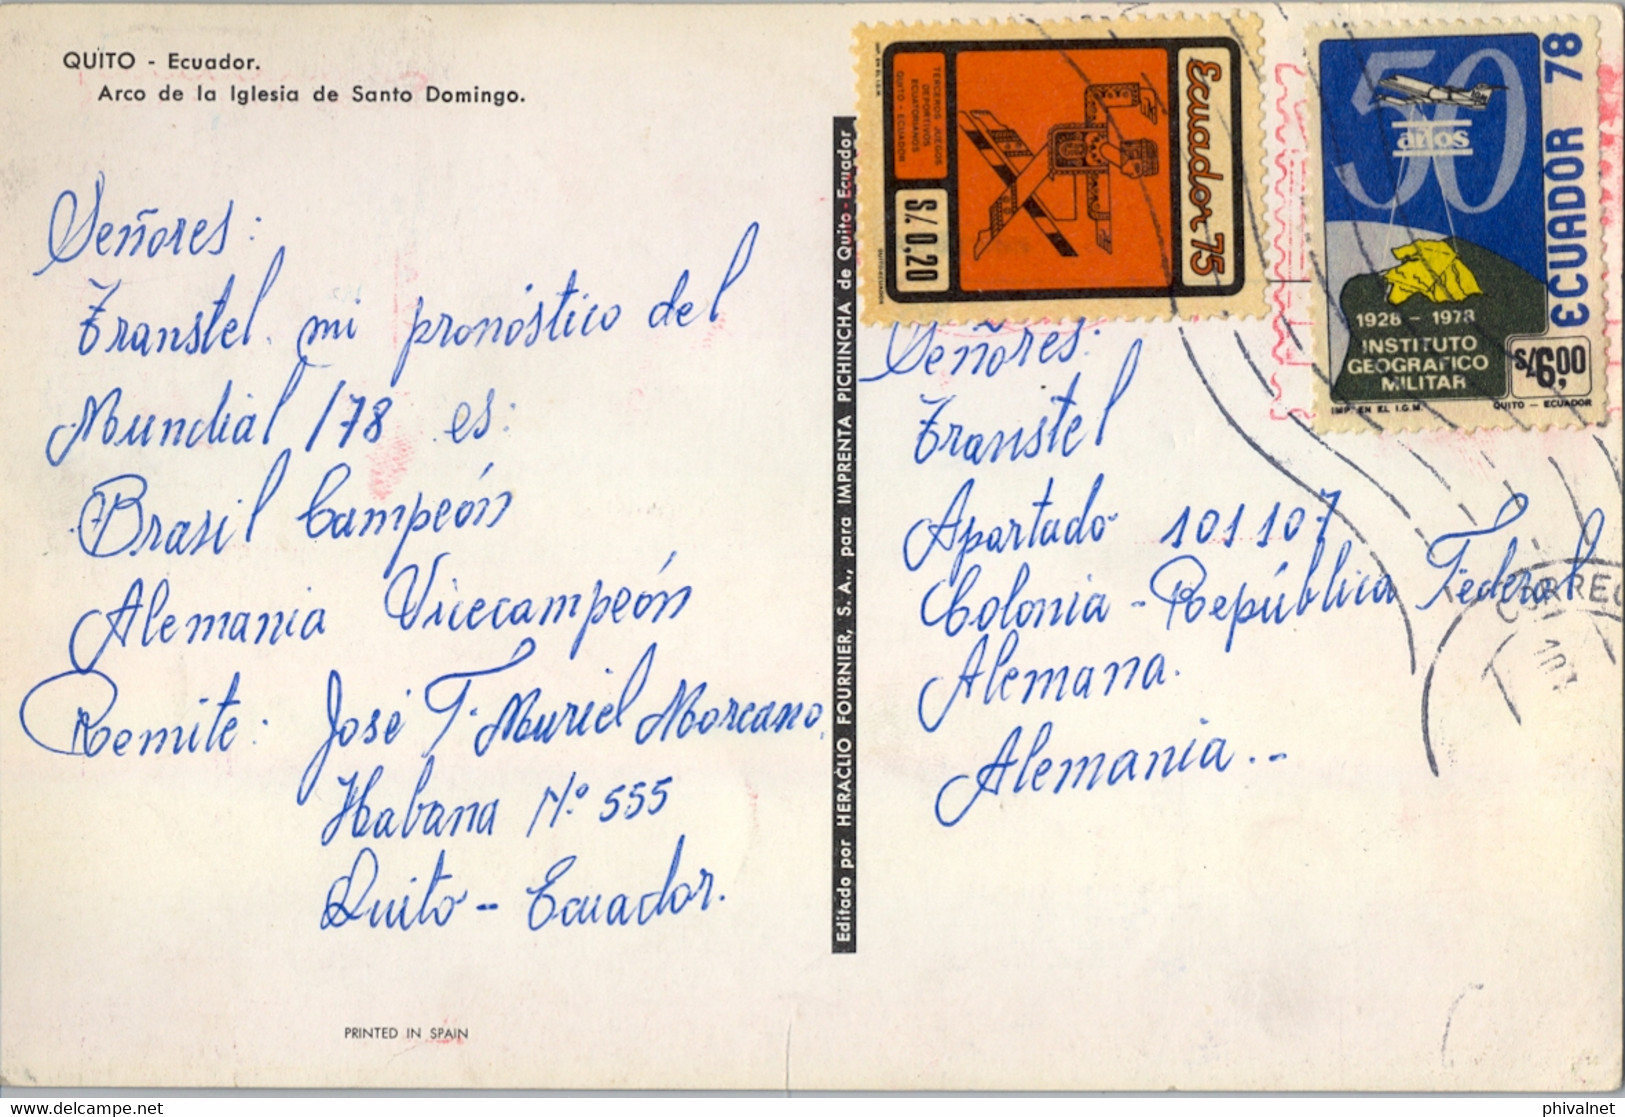 QUITO - Ecuador.
Arco de la Iglesia de Santo Domingo.
Señores:
Transtel. mi pronóstico del
Mundial /78 es:
Brasil Campeón
Alemania Vicecampeón
Remite: José T. Muriel Morcano.
Habana Nº 555
Quito - Ecuador.
PRINTED IN SPAIN
Editado por HERACLIO FOURNIER, S. A., para IMPRENTA PICHINCHA de Quito-Ecuador
Ecuador 75
TERCEROS JUEGOS
DEPORTIVOS
ECUATORIANOS
QUITO - ECUADOR
S/. 0,20
IMP. EN EL I.G.M.
QUITO-ECUADOR
50
años
ECUADOR 78
1928 - 1978
INSTITUTO
GEOGRAFICO
MILITAR
S/6,00
IMP. EN EL I.G.M.
QUITO - ECUADOR
Señores:
Transtel
Apartado 101107
Colonia - República Federal
Alemana.
Alemania..
CORREO
phivalnet